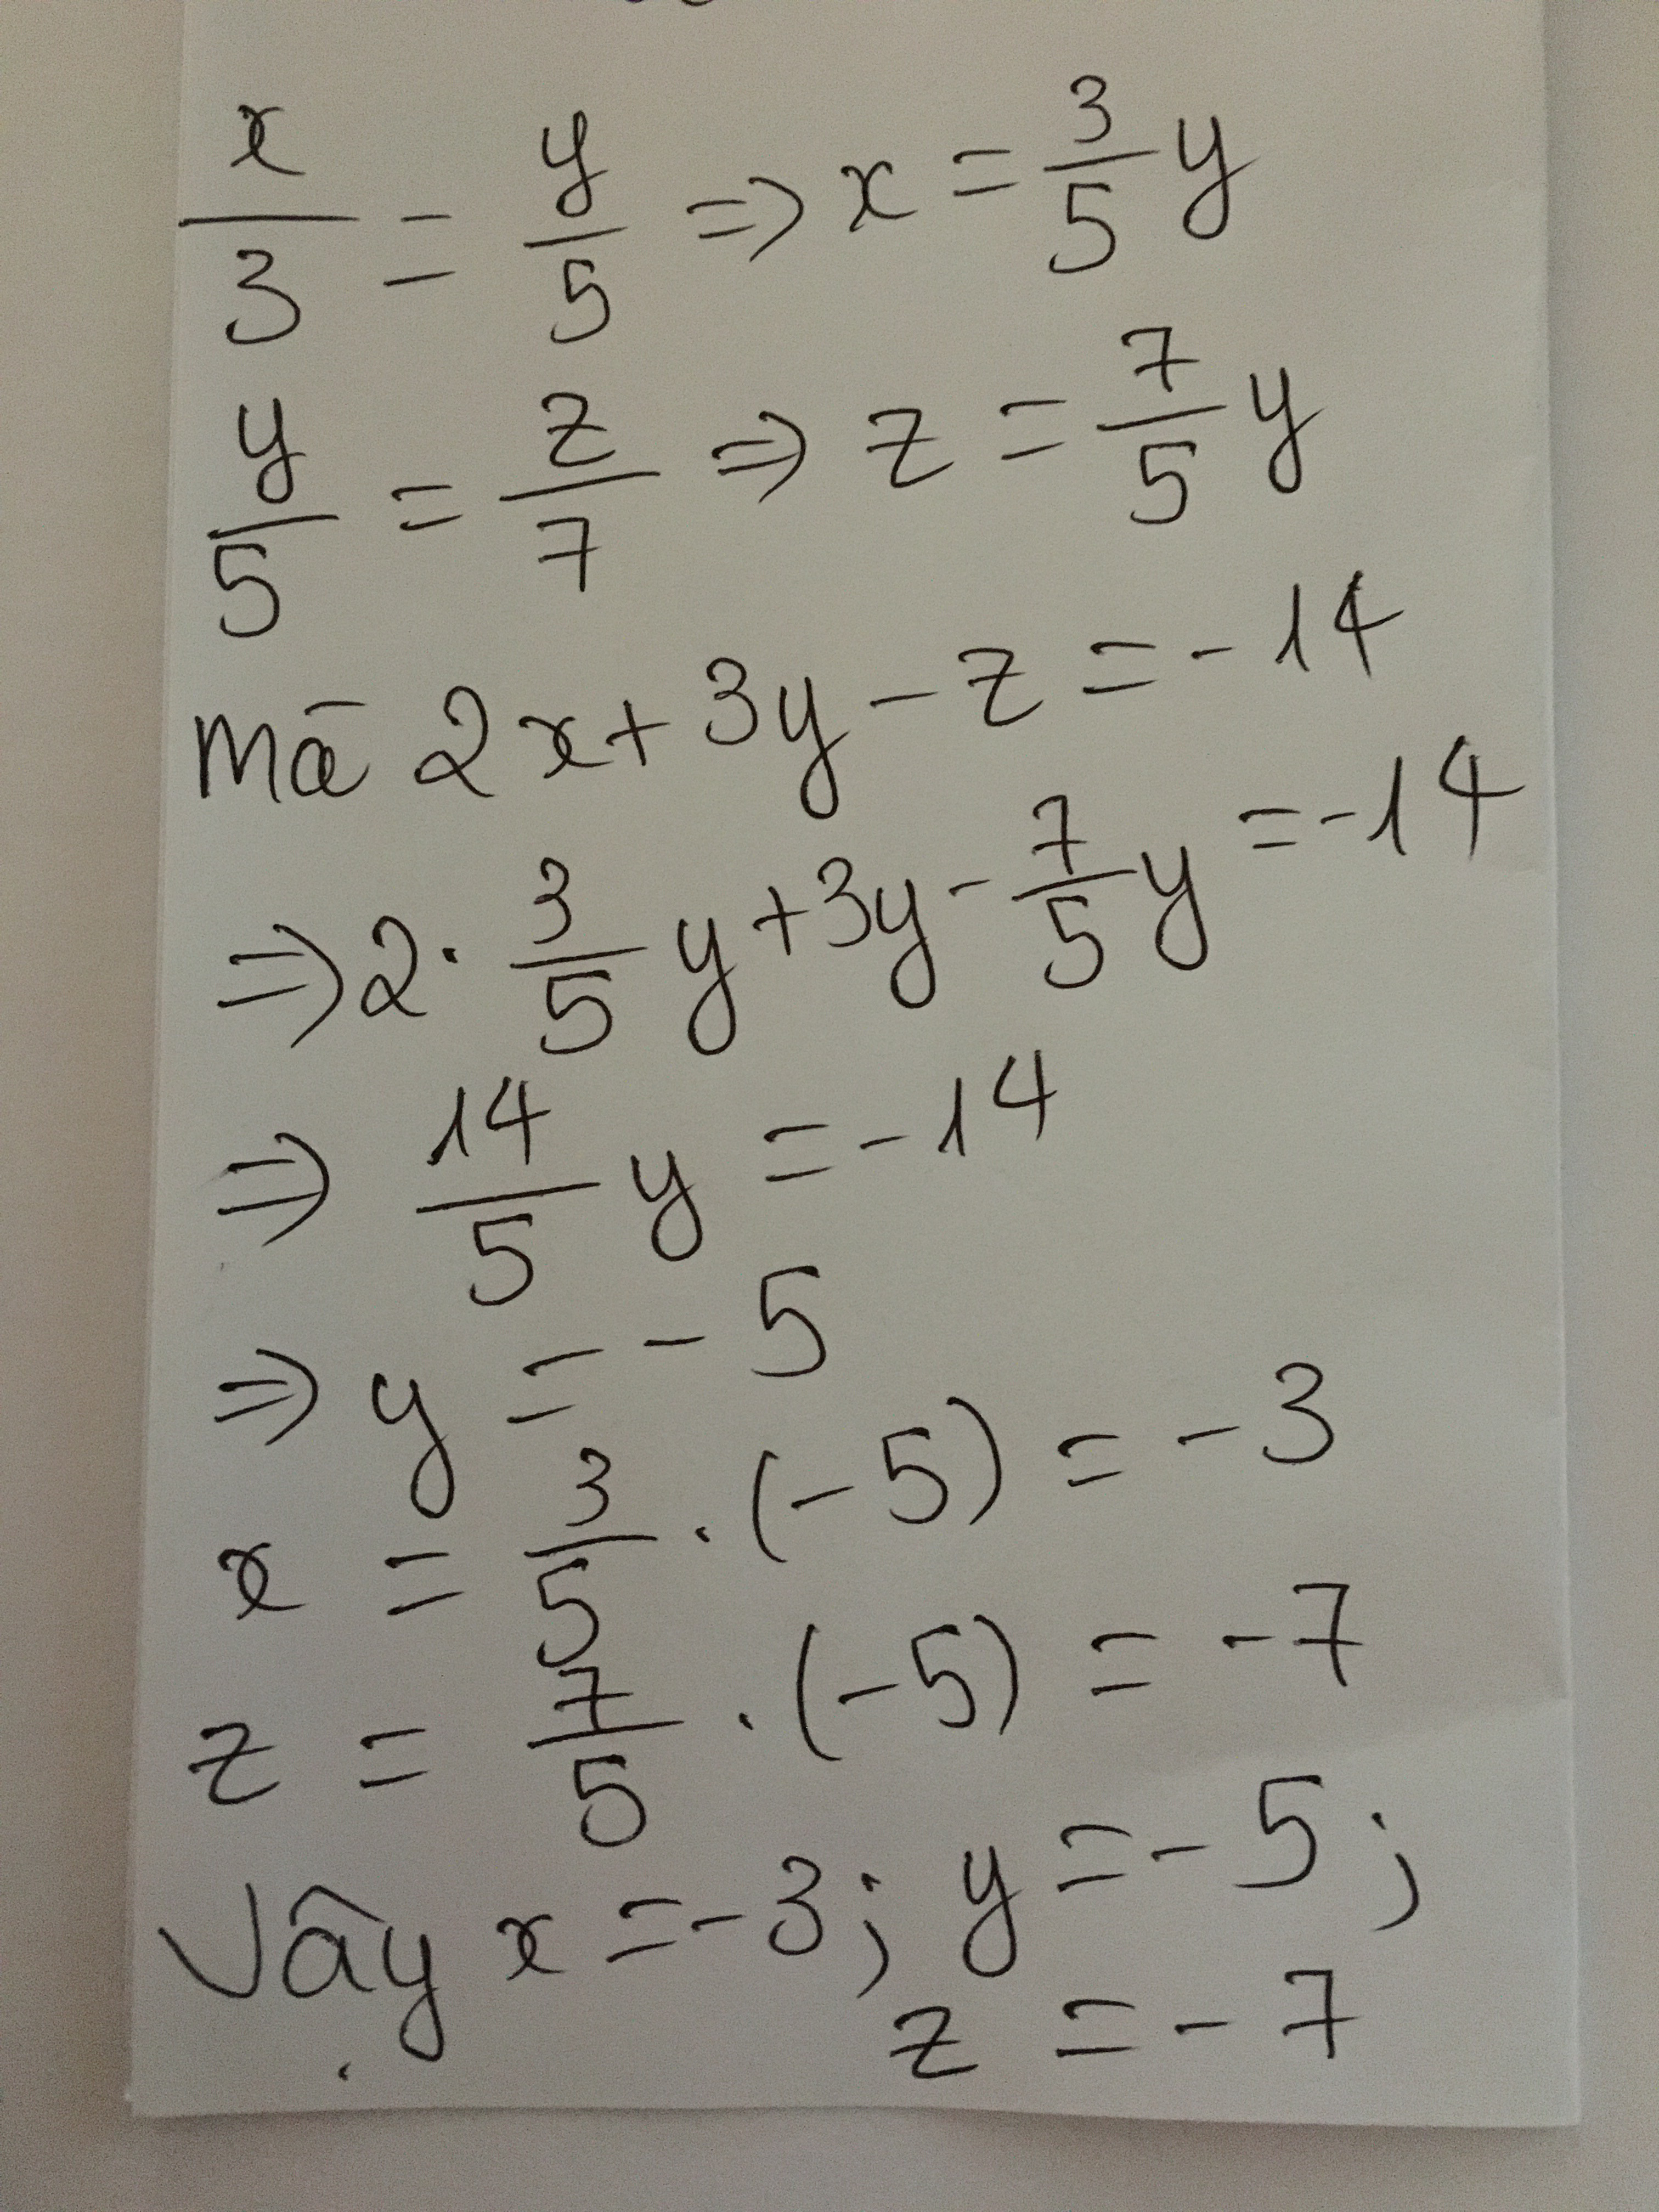 x/3 = y/5 => x = 3/5 y
y/5 = z/7 => z = 7/5 y
Mà 2x + 3y - z = -14
=> 2 · 3/5 y + 3y - 7/5 y = -14
=> 14/5 y = -14
=> y = -5
x = 3/5 . (-5) = -3
z = 7/5 . (-5) = -7
Vậy x = -3; y = -5;
z = -7